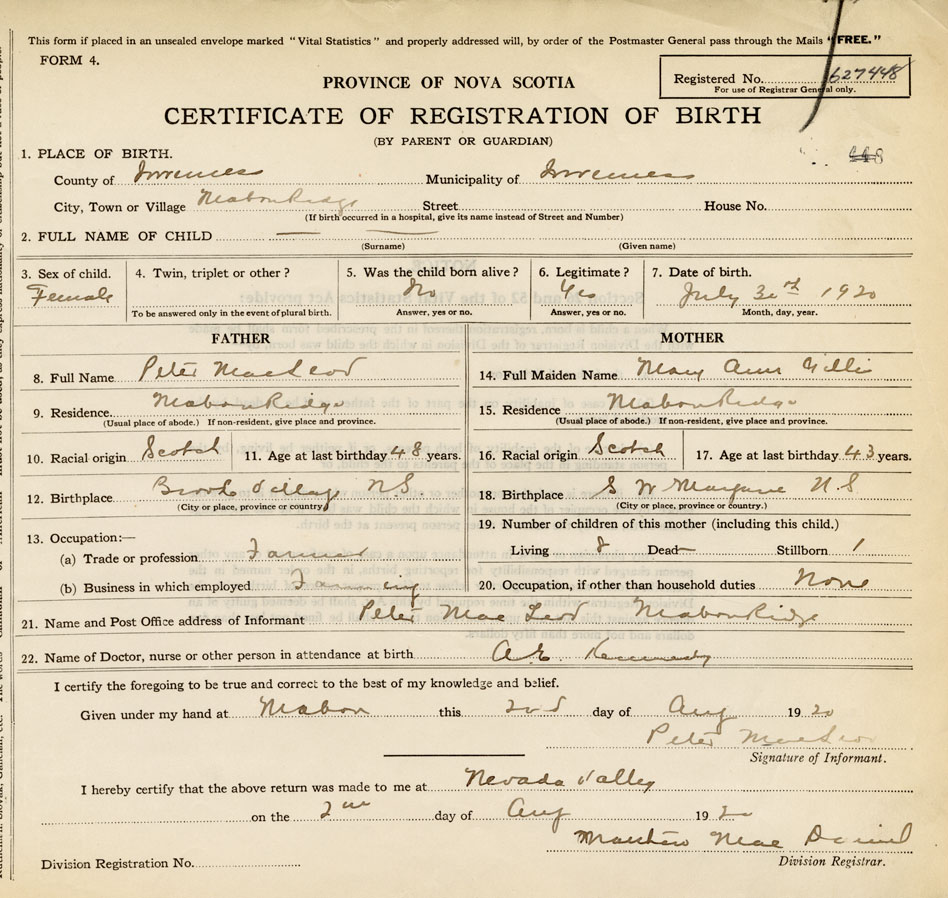 This form if placed in an unsealed envelope marked "Vital Statistics" and properly addressed will, by order of the Postmaster General pass through the Mails "FREE."
FORM 4.
PROVINCE OF NOVA SCOTIA
Registered No. 627448
For use of Registrar General only.
CERTIFICATE OF REGISTRATION OF BIRTH
(BY PARENT OR GUARDIAN)
1. PLACE OF BIRTH.
County of Inverness Municipality of Inverness
City, Town or Village Mabou Ridge Street House No.
(If birth occurred in a hospital, give its name instead of Street and Number)
2. FULL NAME OF CHILD
(Surname) (Given name)
3. Sex of child. 4. Twin, triplet or other? 5. Was the child born alive? 6. Legitimate? 7. Date of birth.
Female No Yes July 1920
To be answered only in the event of plural birth. Answer, yes or no. Answer, yes or no. Month, day, year.
FATHER MOTHER
8. Full Name Peter MacLeod 14. Full Maiden Name Mary Ann Gillis
9. Residence. Mabou Ridge 15. Residence Mabou Ridge
(Usual place of abode.) If non-resident, give place and province. (Usual place of abode.) If non-resident, give place and province.
10. Racial origin Scotch 11. Age at last birthday 48 years. 16. Racial origin Scotch 17. Age at last birthday 43 years.
12. Birthplace Brook Village N.S. 18. Birthplace S W Margaree N.S
(City or place, province or country) (City or place, province or country.)
19. Number of children of this mother (including this child.)
13. Occupation:—
(a) Trade or profession Farmer Living 8 Dead — Stillborn 1
(b) Business in which employed Farming 20. Occupation, if other than household duties None
21. Name and Post Office address of Informant Peter Mac Leod Mabou Ridge
22. Name of Doctor, nurse or other person in attendance at birth Kennedy
I certify the foregoing to be true and correct to the best of my knowledge and belief.
Given under my hand at Mabou this 2nd day of Aug 1920
Peter MacLeod
Signature of Informant.
I hereby certify that the above return was made to me at Nevada Valley
on the 2nd day of Aug 1920
Matthew Mac Daniel
Division Registrar.
Division Registration No.